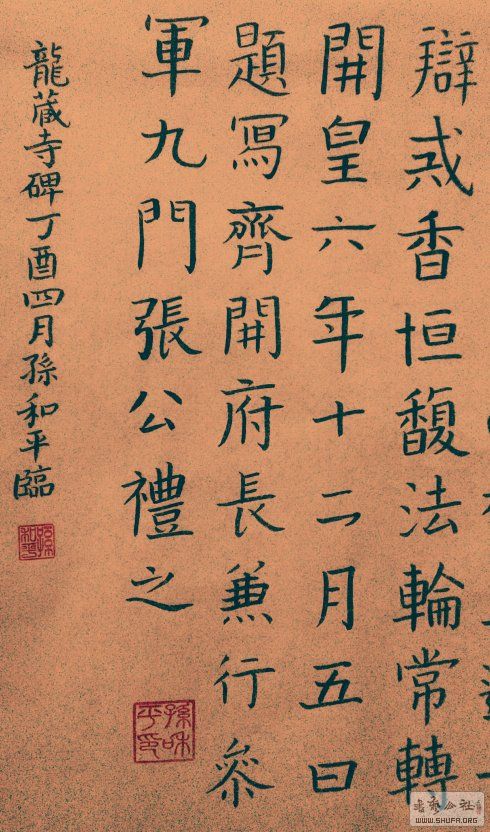 辯戒香恒馥法輪常轉
開皇六年十二月五日
題寫齊開府長兼行參
軍九門張公禮之
龍蔵寺碑丁酉四月孫和平臨
孫和平
孫和平印
WWW.SHUFA.ORG